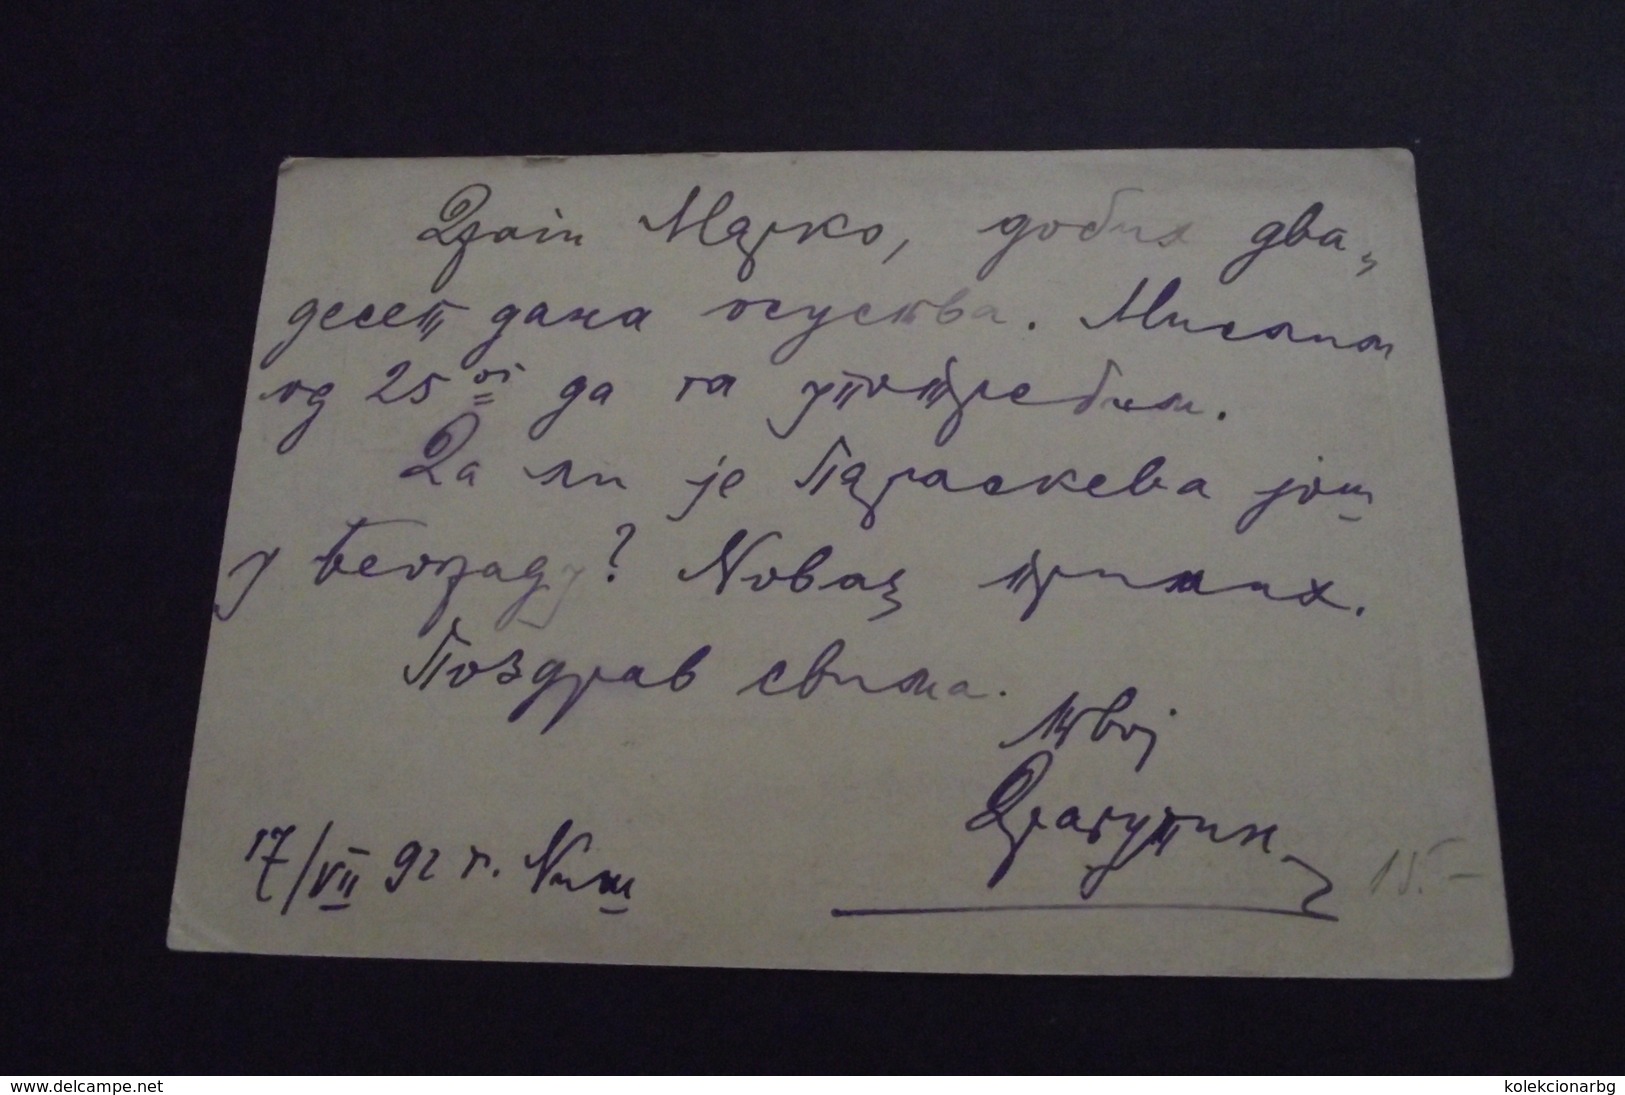 Драги Марко, добих два-
десет дана осуства. Мислим
од 25 ог да га употребим.
Да ли је Параскева још
у Београду? Новац примах.
Поздрав свима.
Твој
Драгутин
17/VII 92 г. Ниш
15.-
www.delcampe.net
kolekcionarbg